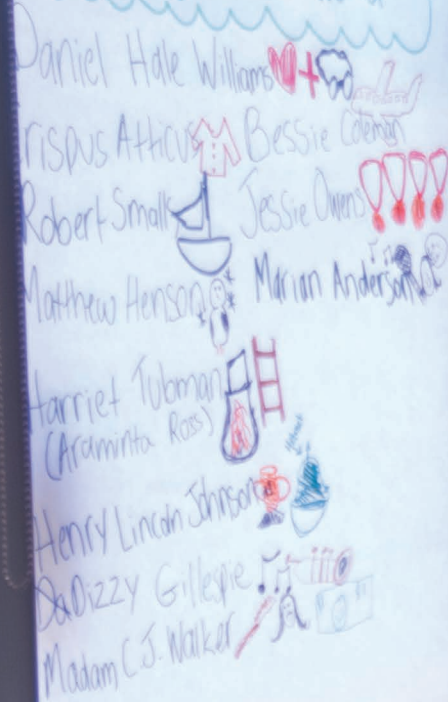 Daniel Hale Williams
rispus Atticus Bessie Coleman
Robert Small Jessie Owens
Matthew Henson Marian Anderson
Harriet Tubman
(Araminta Ross)
Henry Lincoln Johnson
DaDizzy Gillespie
Madam C.J. Walker